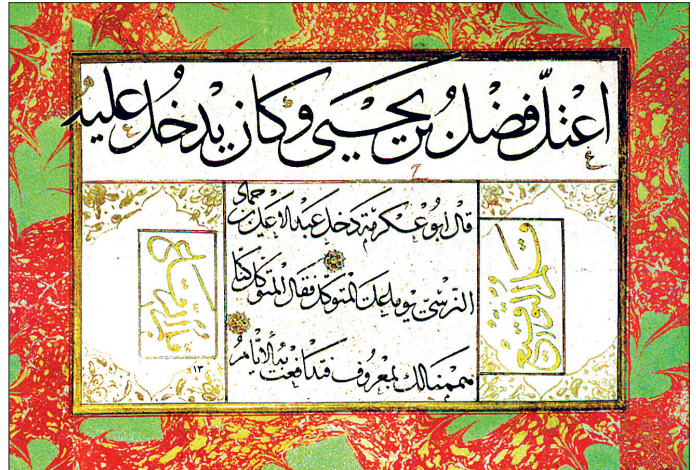 اعتل فضل بن يحيى وكان يدخل عليه
قال ابو عكرمة دخل عبد الاعلى بن حماد
النرسي يوما على المتوكل فقال المتوكل كنا
هممنا لك بمعروف فتدافعت به الايام
قلم التوقيع
قلم الرقاع
١٣